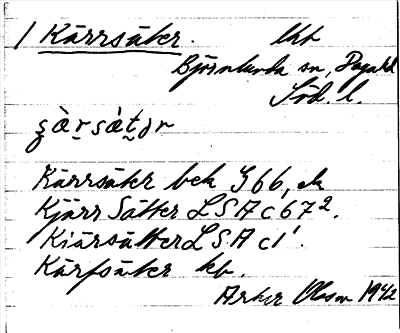 1 Kärrsäter.
Björnlunda sn, Daga hd
Söd. l.
Kärrsäter bek G 66, ek
Kjärr Sätter LSA c 67².
Kiärsätter LSA c1¹
Kärfsäter kb.
Olsson 1942